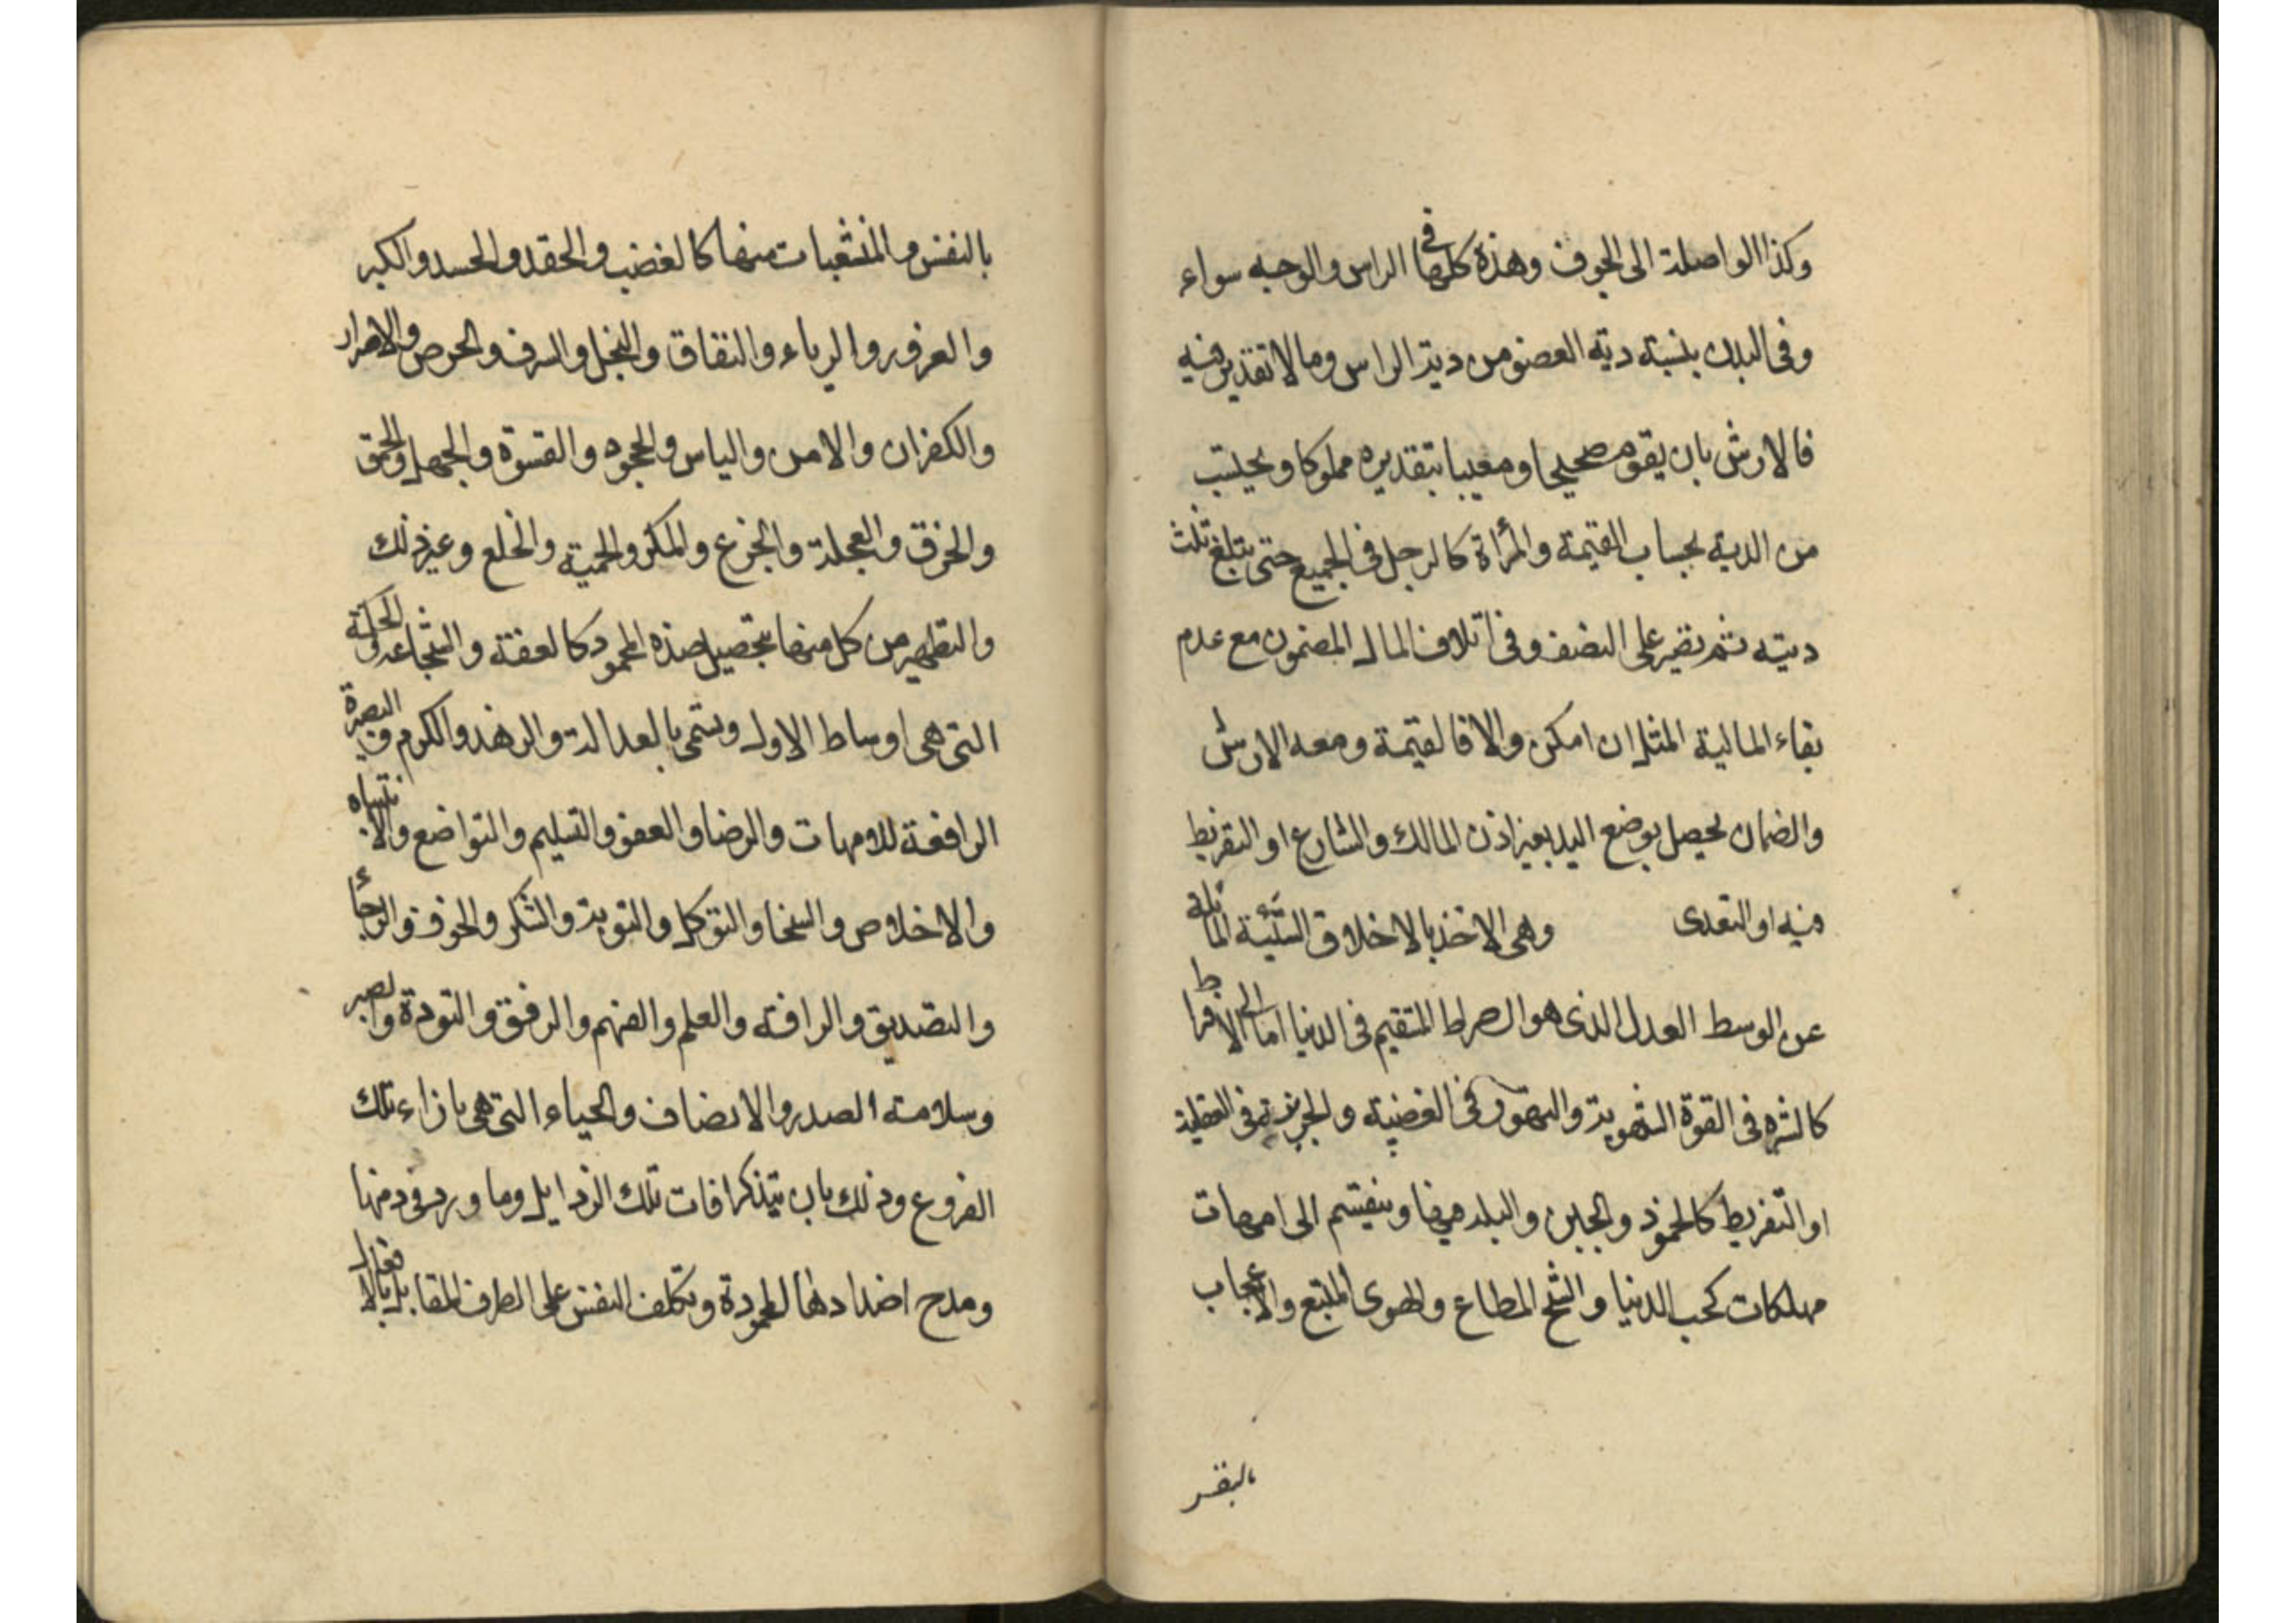 وكذا الواصلة الى الجوف وهذه كلها في الراس والوجه سواء
وفى البدن بنسبة دية العضو من دية الراس وما لا تقدير فيه
فالارش بان يقوم صحيحا ومعيبا بتقديره مملوكا ويحتسب
من الدية بحساب القيمة والمرأة كالرجل فى الجميع حتى تبلغ ثلث
ديته ثم تصير على النصف وفى اتلاف المال المضمون مع عدم
بقاء المالية المثل ان امكن والا فالقيمة ومعه الارش
والضمان يحصل بوضع اليد بغير اذن المالك والشارع او التفريط
فيه او التعدى وهى الاخذ بالاخلاق السيئة المائلة
عن الوسط العدل الذى هو الصراط المستقيم فى الدنيا اما الى الافراط
كالشره فى القوة الشهوية والتهور فى الغضبية والجربزة فى العقلية
او التفريط كالخمود والجبن والبله فيها وينقسم الى امهات
مهلكات كحب الدنيا والشح المطاع والهوى المتبع والاعجاب
بالنفس
بالنفس والمنشعبات منها كالغضب والحقد والحسد والكبر
والغرور والرياء والنفاق والبخل والسرف والحرص والاصرار
والكفران والامن والياس والجحود والقسوة والجهل والحمق
والخرق والعجلة والجزع والمكر والحمية والخلع وغير ذلك
والتطهير من كل منها بتحصيل ضده المحمود كالعفة والشجاعة والحكمة
التى هى اوساط الاول وتسمى بالعدالة والزهد والكرم والبصيرة
الرافعة للامهات والرضا والعفو والتسليم والتواضع والانتباه
والاخلاص والسخا والتوكل والتوبة والشكر والخوف والرجاء
والتصديق والرافة والعلم والفهم والرفق والتودة والصبر
وسلامة الصدر والانصاف والحياء التى هى بازاء تلك
الفروع وذلك بان يتذكر افات تلك الرذايل وما ورد فى ذمها
ومدح اضدادها المحمودة وتكلف النفس على الطرف المقابل بالافعال